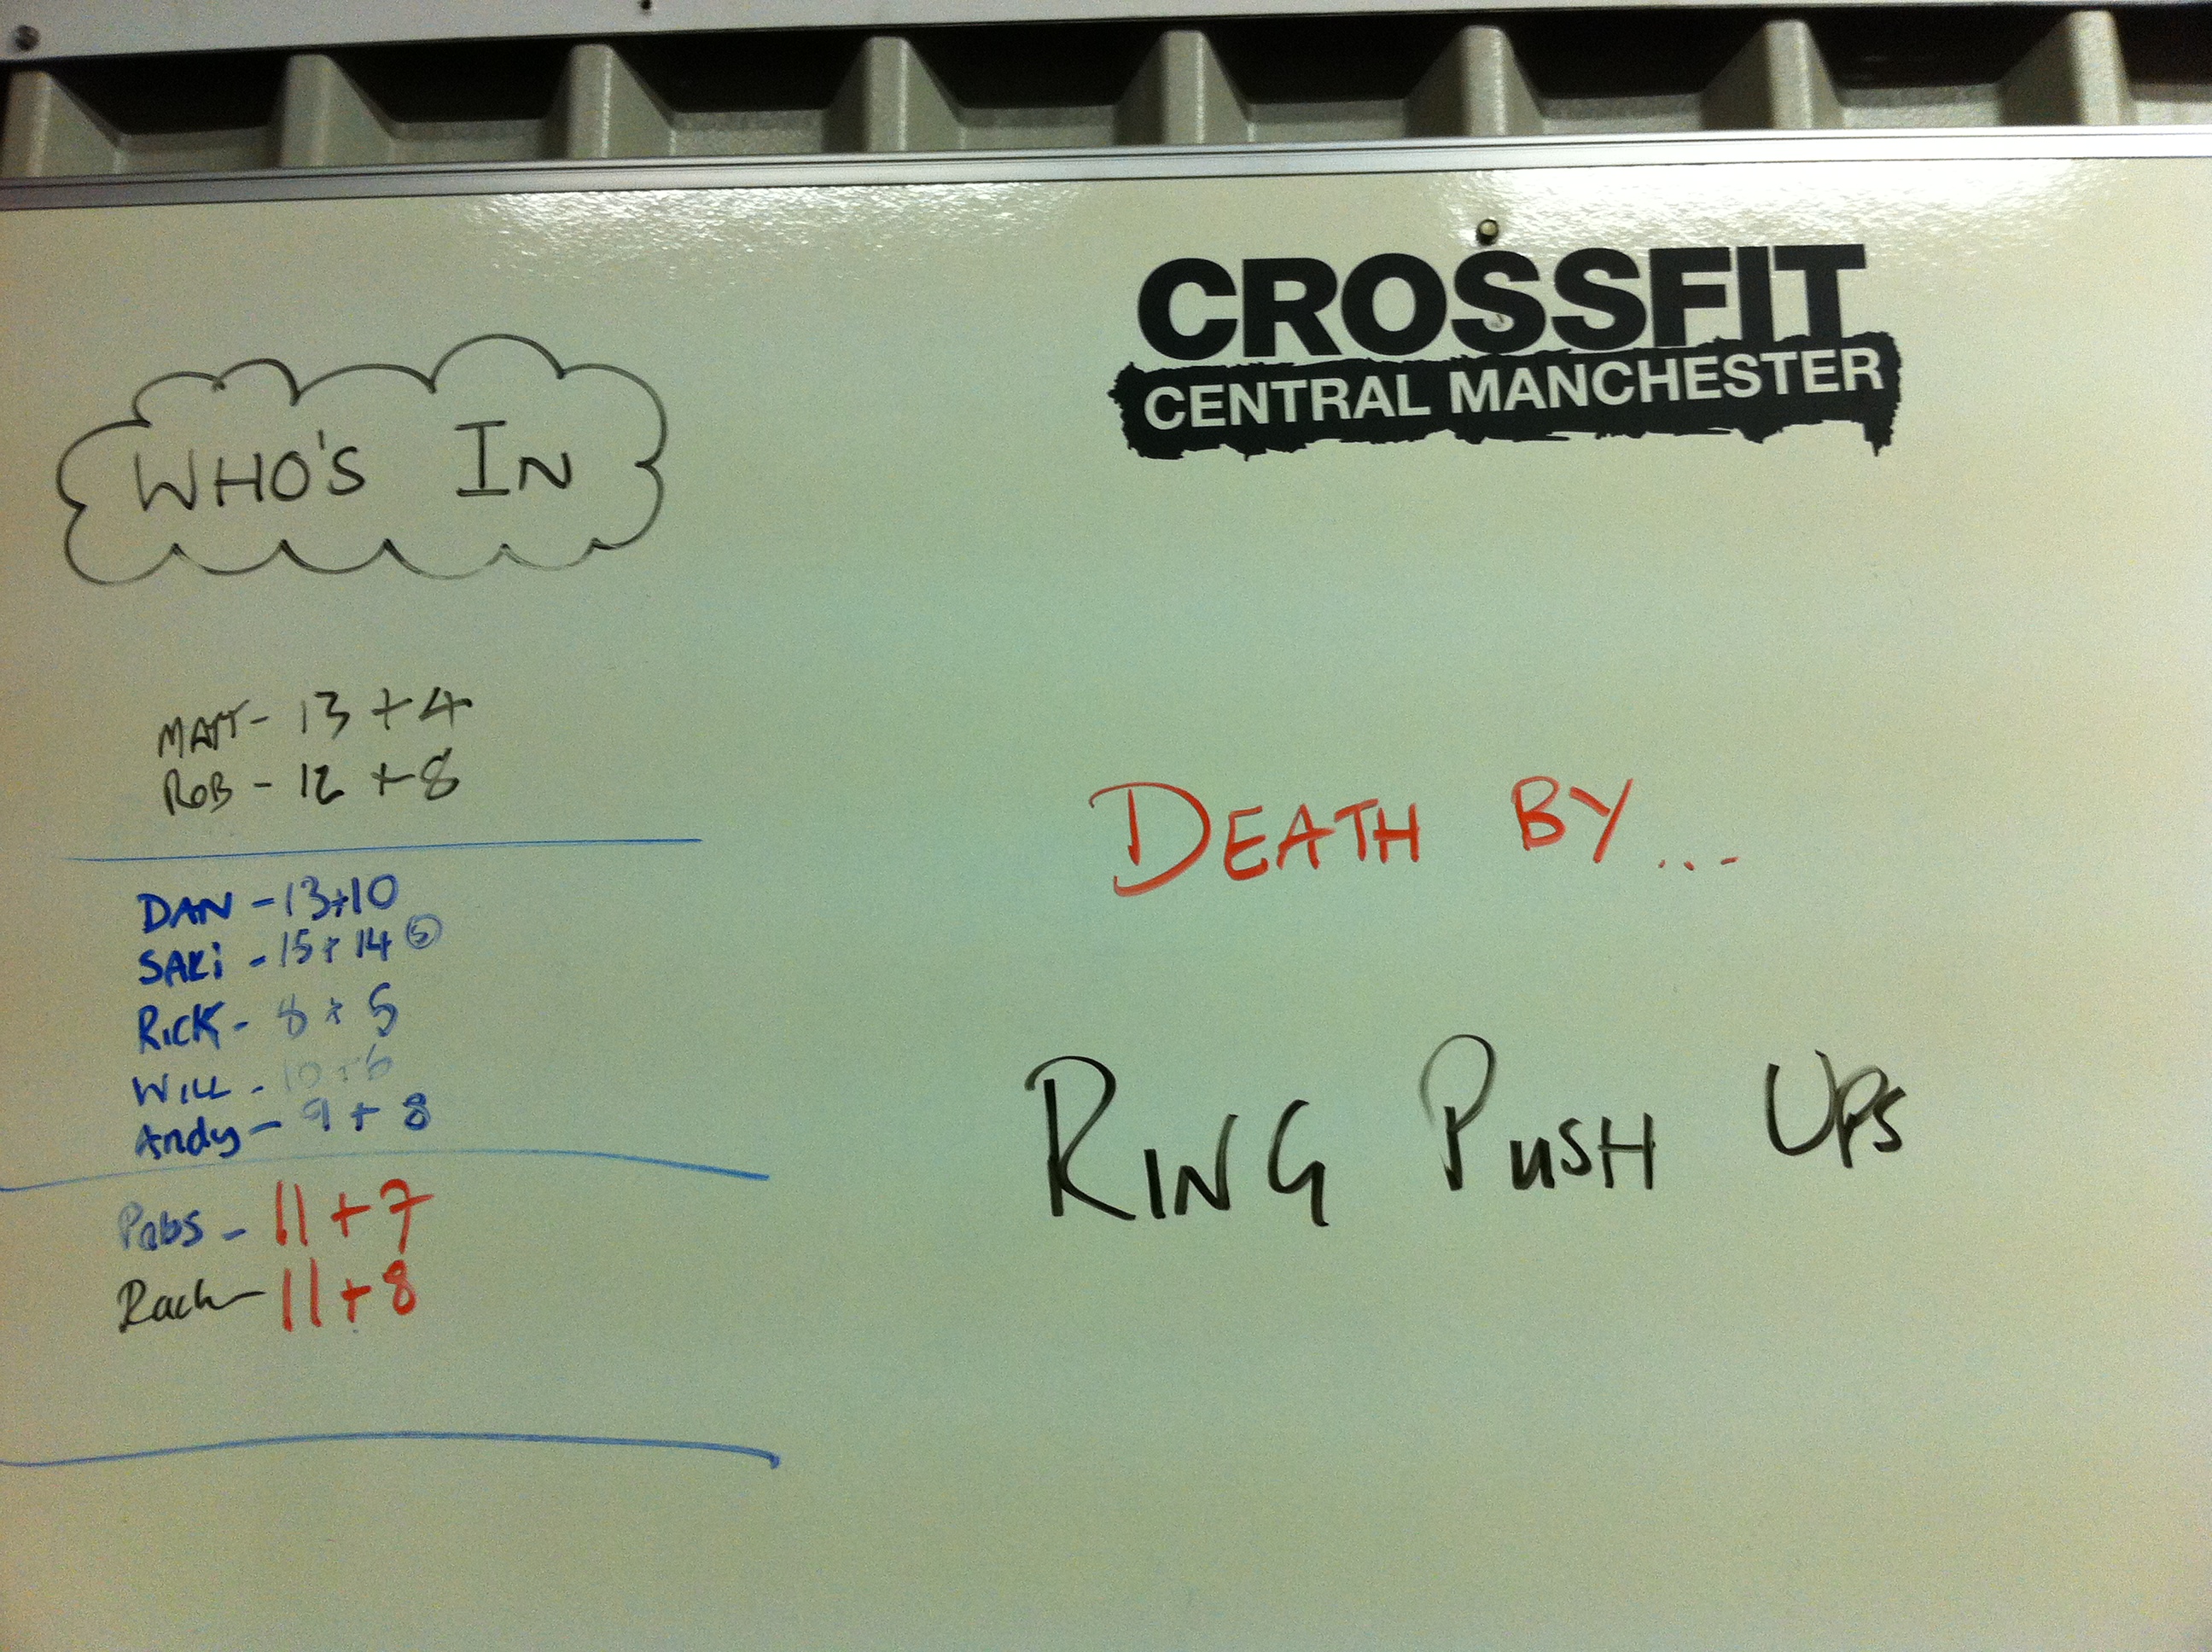 WHO'S IN
MATT- 13 + 4
ROB - 12 + 8
DAN - 13+10
SAKi - 15 + 14 (5)
RICK - 8 + 5
WILL - 10 + 6
Andy - 9 + 8
Pabs - 11 + 7
Rach - 11 + 8
CROSSFIT
CENTRAL MANCHESTER
DEATH BY...
RING PUSH UPS